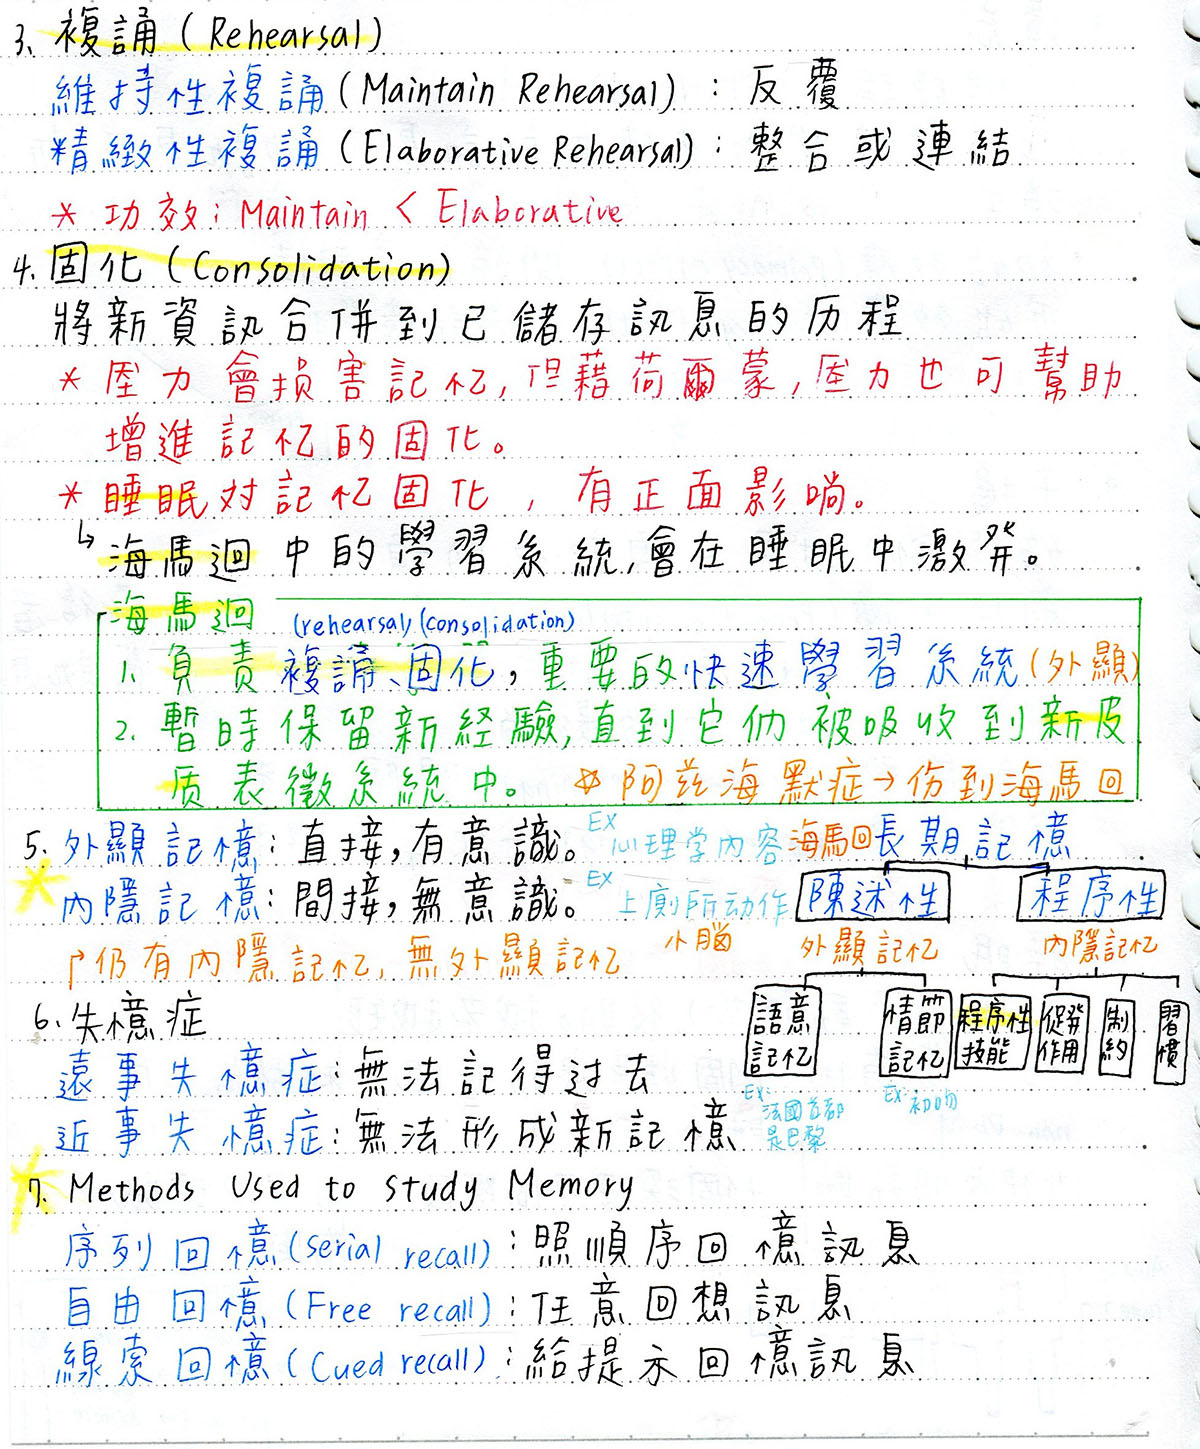 3. 複誦 (Rehearsal)
維持性複誦 (Maintain Rehearsal) : 反覆
精緻性複誦 (Elaborative Rehearsal) : 整合或連結
* 功效: Maintain < Elaborative
4. 固化 (Consolidation)
將新資訊合併到已儲存訊息的历程
* 壓力會損害記忆, 但藉荷爾蒙, 壓力也可幫助
增進記忆的固化。
* 睡眠对記忆固化, 有正面影响。
↳ 海馬迴中的學習系統, 會在睡眠中激発。
海馬迴 (rehearsal) (consolidation)
1. 負責複誦、固化, 重要的快速學習系統 (外顯)
2. 暫時保留新経驗, 直到它们被吸收到新皮
质表徵系統中。 * 阿兹海默症→伤到海馬回
5. 外顯記憶: 直接, 有意識。 EX 心理学內容 海馬回
內隱記憶: 間接, 無意識。 EX 上廁所动作 小腦
長期記憶
陳述性 程序性
外顯記忆 內隱記忆
語意記忆 情節記忆 程序性技能 促発作用 制約 習慣
EX: 法國首都是巴黎 EX: 初吻
↱仍有內隱記忆, 無外顯記忆
6. 失憶症
遠事失憶症: 無法記得过去
近事失憶症: 無法形成新記憶
7. Methods Used to Study Memory
序列回憶 (Serial recall) : 照順序回憶訊息
自由回憶 (Free recall) : 任意回想訊息
線索回憶 (Cued recall) : 給提示回憶訊息